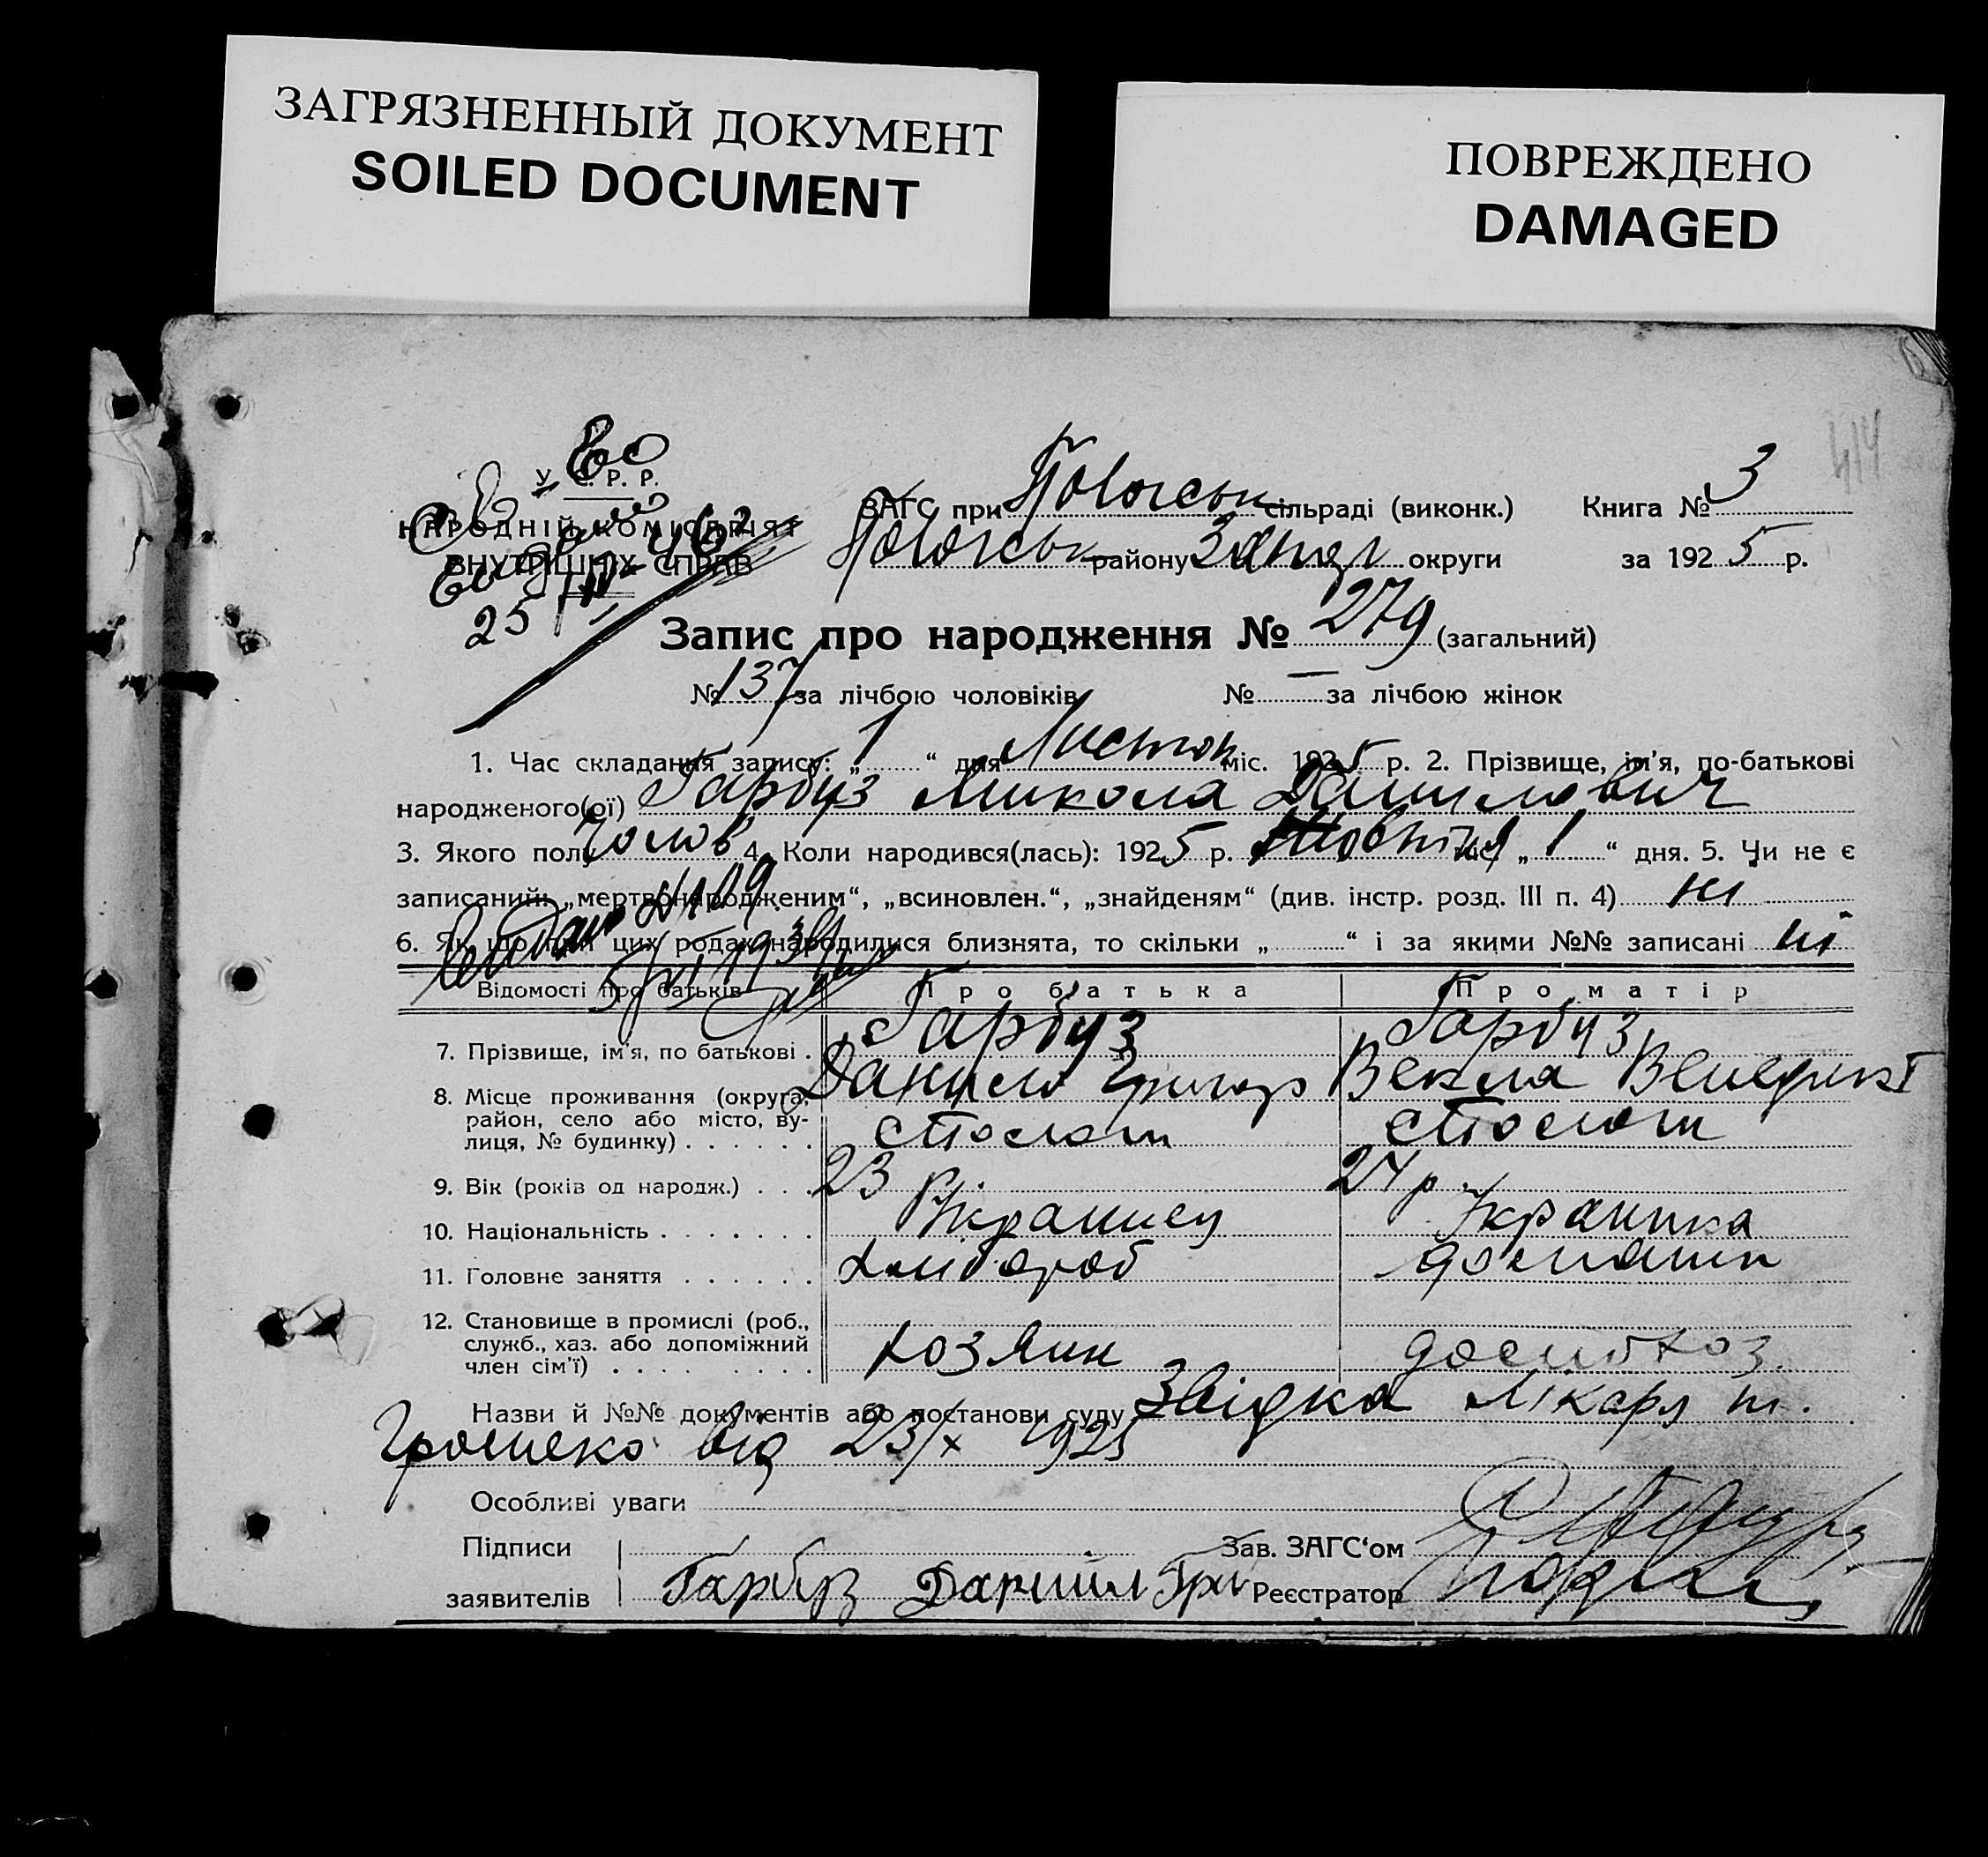 ЗАГРЯЗНЕННЫЙ ДОКУМЕНТ
SOILED DOCUMENT
ПОВРЕЖДЕНО
DAMAGED
414
У. С. Р. Р.
НАРОДНІЙ КОМІСАРІЯТ
ВНУТРІШНІХ СПРАВ
25/IV
ЗАГС при Пологськ сільраді (виконк.) Книга № 3
Пологськ району Запор округи за 1925 р.
Запис про народження № 279 (загальний)
№ 137 за лічбою чоловіків № — за лічбою жінок
1. Час складання запису: „ 1 “ дня Листоп міс. 1925 р. 2. Прізвище, ім'я, по-батькові
народженого(ої) Гарбуз Микола Данилович
3. Якого полу Чолов 4. Коли народився(лась): 1925 р. Жовтня міс. „ 1 “ дня. 5. Чи не є
записаний: „мертвонародженим“, „всиновлен.“, „знайденям“ (див. інстр. розд. III п. 4) ні
6. Як що при цих родах народилися близнята, то скільки „ “ і за якими №№ записані ні
Відомості про батьків Про батька Про матір
7. Прізвище, ім'я, по батькові . Гарбуз Данило Григор Гарбуз Векла Венедикт
8. Місце проживання (округа, район, село або місто, вулиця, № будинку) . . . . . . с Пологи с Пологи
9. Вік (років од народж.) . . . 23 р. 24 р.
10. Національність . . . . . . . Українец Українка
11. Головне заняття . . . . . . хлібороб домашн
12. Становище в промислі (роб., служб., хаз. або допоміжний член сім'ї) . . . . . . . . . хозяин
Назви й №№ документів або постанови суду Звідка лікаря т.
Громеко від 23/X 1925
Особливі уваги
Підписи Зав. ЗАГС‘ом
заявителів Гарбуз Даниил Гри Реєстратор